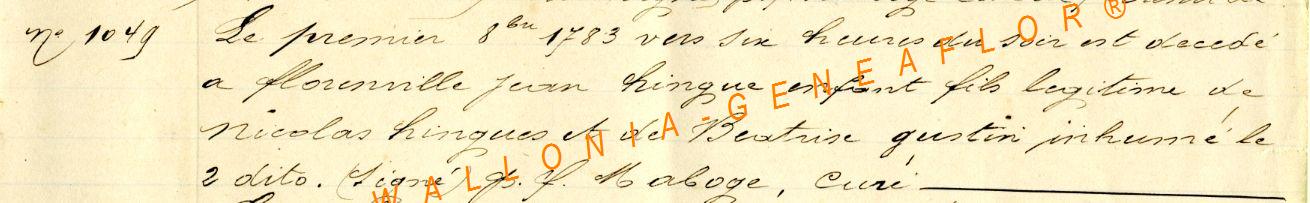 n° 1049 Le premier 8bre 1783 vers six heures du soir est decedé
a florenville jean hingue enfant fils legitime de
Nicolas hingues et de Beatrise gustin inhumé le
2 dito. (Signé) f. Maboge, Curé
WALLONIA-GENEAFLOR®